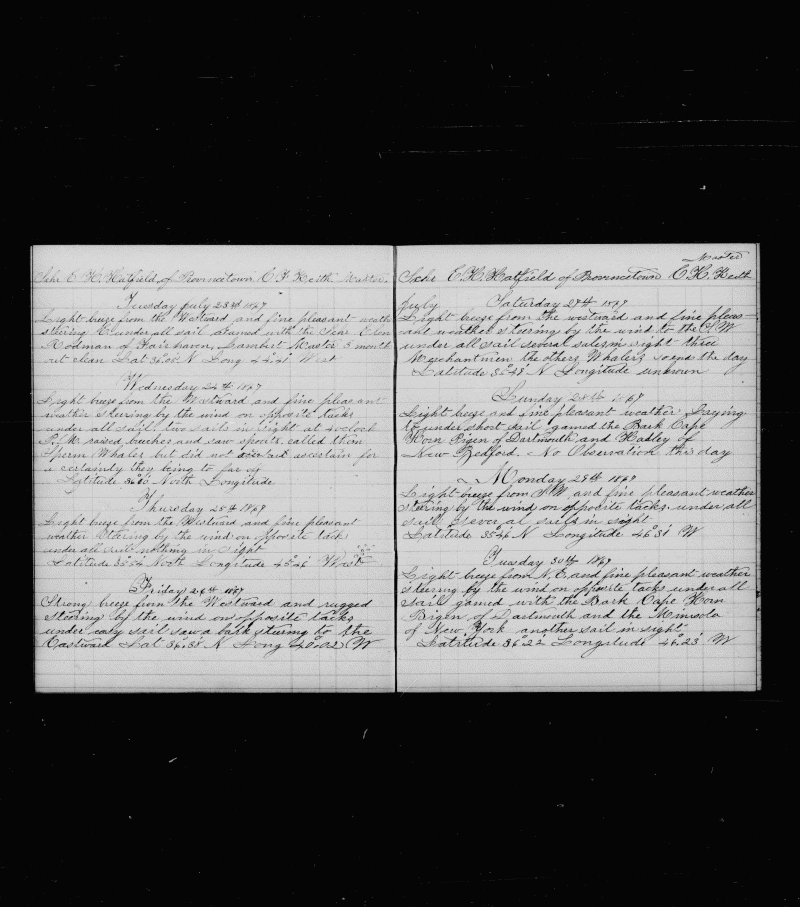 Schr E. H. Hatfield of Provincetown E. F. Keith Master.
Tuesday July 23rd 1867
Light breeze from the Westward and fine pleasant weather
steering E under all sail gamed with the Schr Eben
Rodman of Fair haven, Lambert Master 3 month
out clean Lat 36°05 N Long 42°41 West
Wednesday 24th 1867
Light breeze from the Westward and fine pleasant
weather stering by the wind on opposite tacks
under all sail two sails in sight at 4 oclock
P.M. raised buches and saw spouts called them
Sperm Whales but did not ascertain for
a certainty they being to far of
Latitude North Longitude
Thursday 25th 1867
Light breeze from the Westward and fine pleasant
weather Staring by the wind on opposite tack
under all sail nothing in Sight
Latitude 35°54 North Longitude 45°46 West
Friday 26th 1867
Strong breeze from the Westward and rugged
Steering by the wind on opposite tacks
under easy sail saw a bark sturing to the
Eastward Lat 36°38 N Long 45°02 W
Master
Schr E. H. Hatfield of Provincetown E. H. Keith
July Saturday 27th 1867
Light breeze from the westward and fine pleas-
ant weather steering by the wind to the S.W
under all sail several sales in sight three
Merchantmen the others Whalers so ends the day
Latitude 35°48 N Longitude unknown
Sunday 28th 1867
Light breze and fine pleasant weather Laying
to under short sail gamed the Bark Cape
Horn Pigen of Dartmouth and Hadley of
New Bedford. No Observation this day
Monday 29th 1867
Light breeze from S.W. and fine pleasant weather
steering by the wind on opposite tacks under all
sail Several sails in sight
Latitude 35°46 N Longitude 46°31 W
Tuesday 30th 1867
Light breeze from N.E. and fine pleasant weather
steering by the wind on opposite tacks under all
sail gamed with the Bark Cape Horn
Pigen of Dartmouth and the Minsola
of New York another sail in sight
Latitude 36°22 Longitude 46°23 W